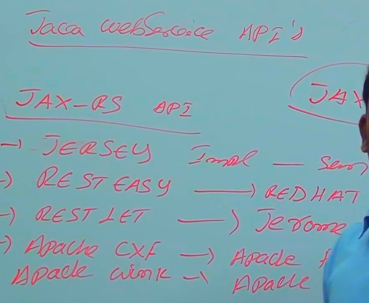 Jaca webService API's
JAX-RS API
JAX
→ JERSEY Impl — Sun
→ RESTEASY → REDHAT
→ RESTLET → Jerome
→ Apache CXF → Apache F
Apache wink → Apache